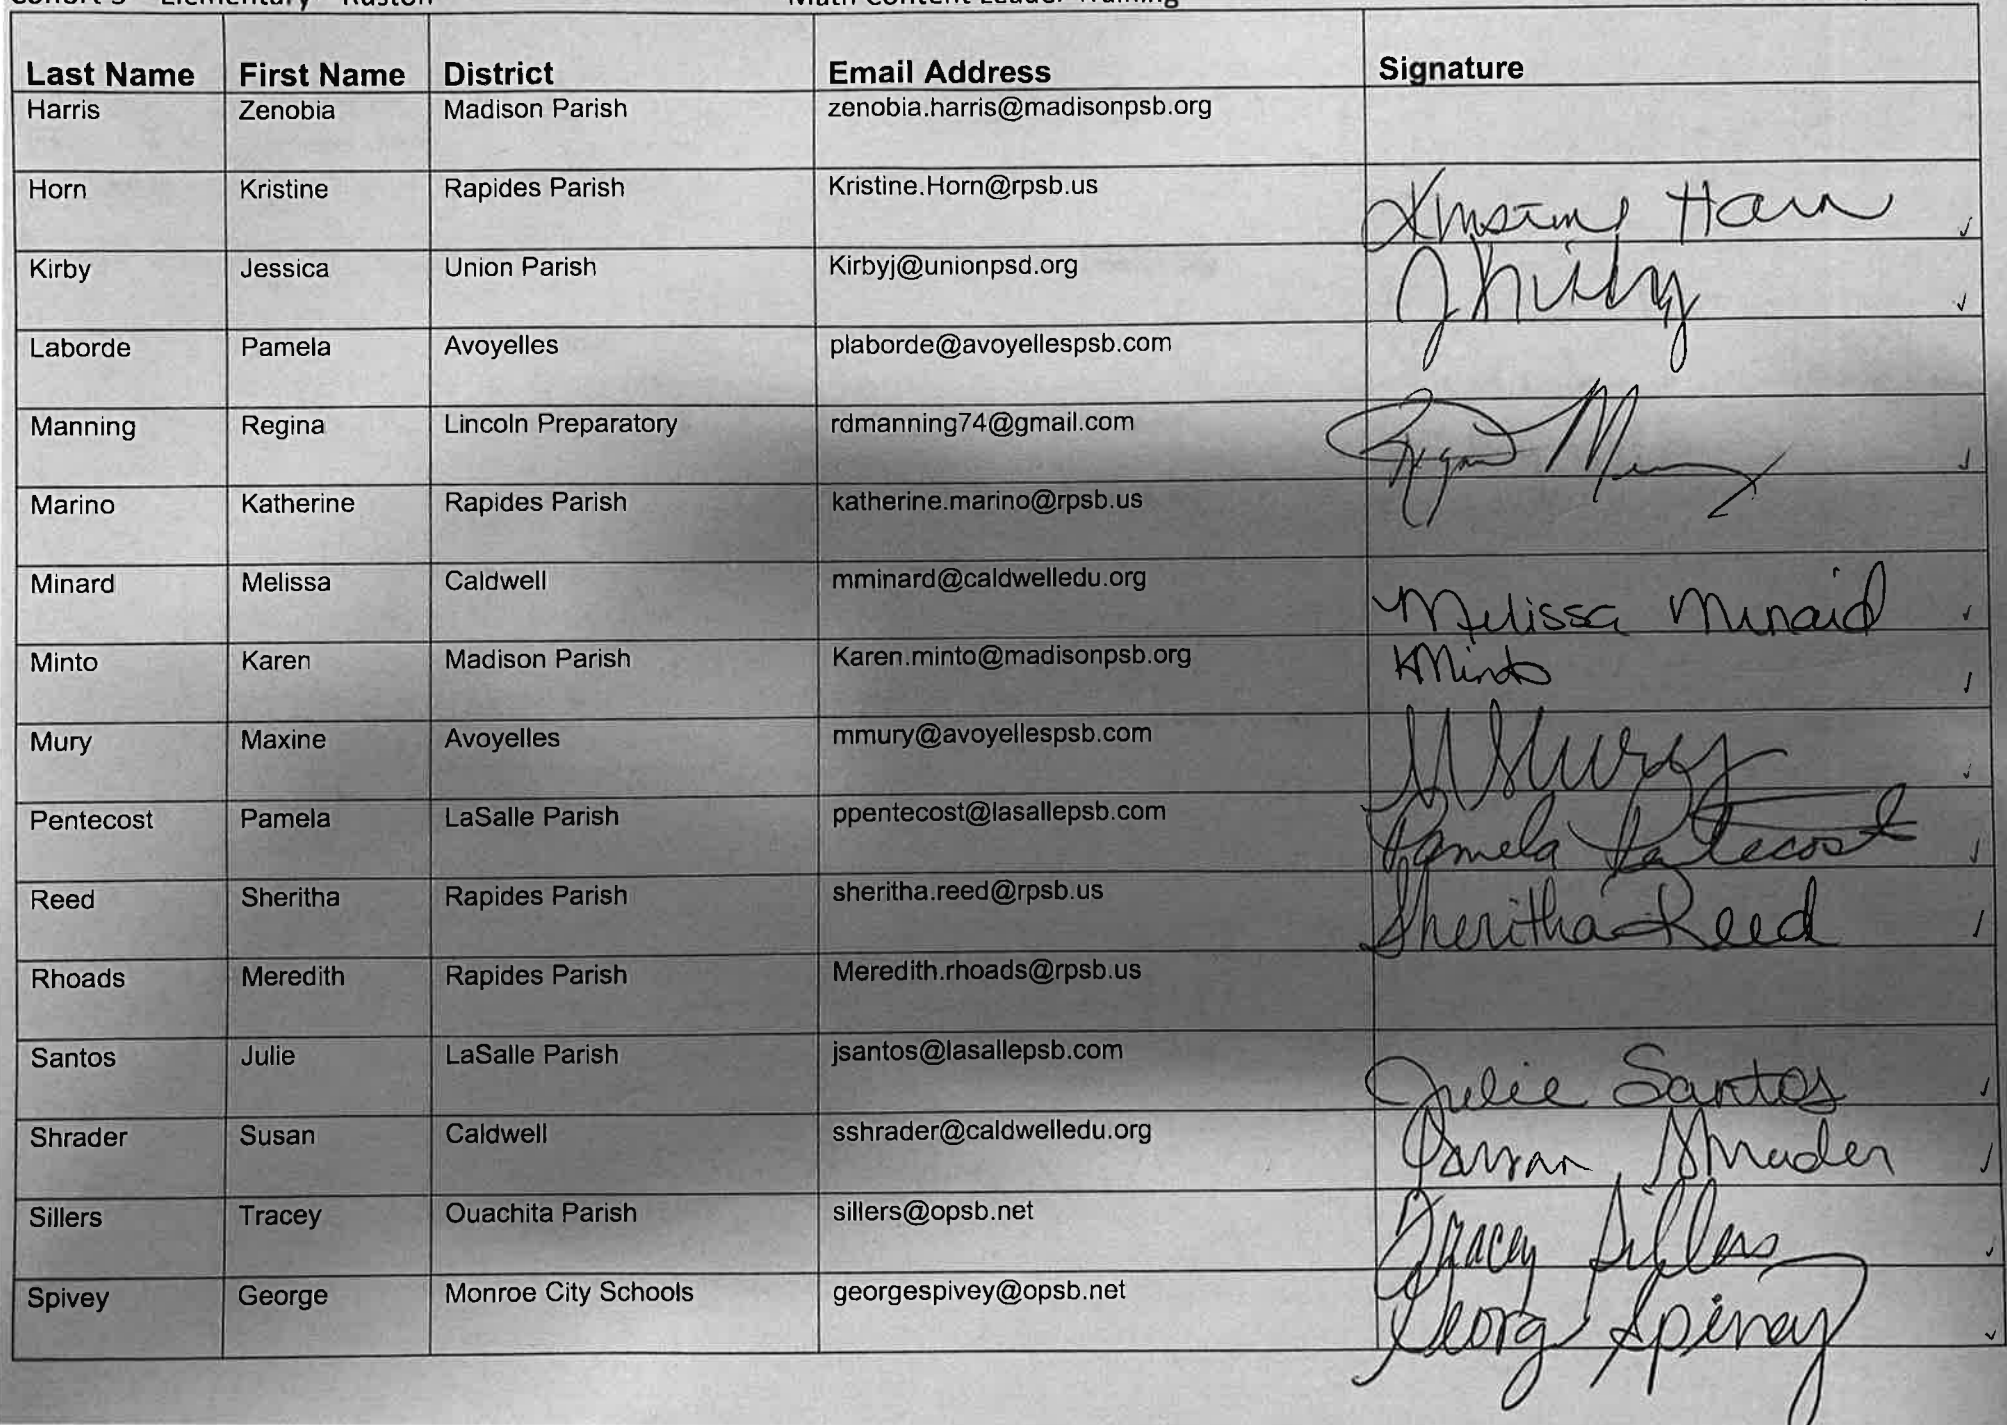 Cohort 3 – Elementary – Ruston Math Content Leader Training
Last Name First Name District Email Address Signature
Harris Zenobia Madison Parish zenobia.harris@madisonpsb.org
Horn Kristine Rapides Parish Kristine.Horn@rpsb.us Kristine Horn ✓
Kirby Jessica Union Parish Kirbyj@unionpsd.org J Kirby ✓
Laborde Pamela Avoyelles plaborde@avoyellespsb.com
Manning Regina Lincoln Preparatory rdmanning74@gmail.com ✓
Marino Katherine Rapides Parish katherine.marino@rpsb.us
Minard Melissa Caldwell mminard@caldwelledu.org Melissa Minard ✓
Minto Karen Madison Parish Karen.minto@madisonpsb.org KMinto ✓
Mury Maxine Avoyelles mmury@avoyellespsb.com M Mury ✓
Pentecost Pamela LaSalle Parish ppentecost@lasallepsb.com Pamela Pentecost ✓
Reed Sheritha Rapides Parish sheritha.reed@rpsb.us Sheritha Reed ✓
Rhoads Meredith Rapides Parish Meredith.rhoads@rpsb.us
Santos Julie LaSalle Parish jsantos@lasallepsb.com Julie Santos ✓
Shrader Susan Caldwell sshrader@caldwelledu.org Susan Shrader ✓
Sillers Tracey Ouachita Parish sillers@opsb.net Tracey Sillers ✓
Spivey George Monroe City Schools georgespivey@opsb.net George Spivey ✓